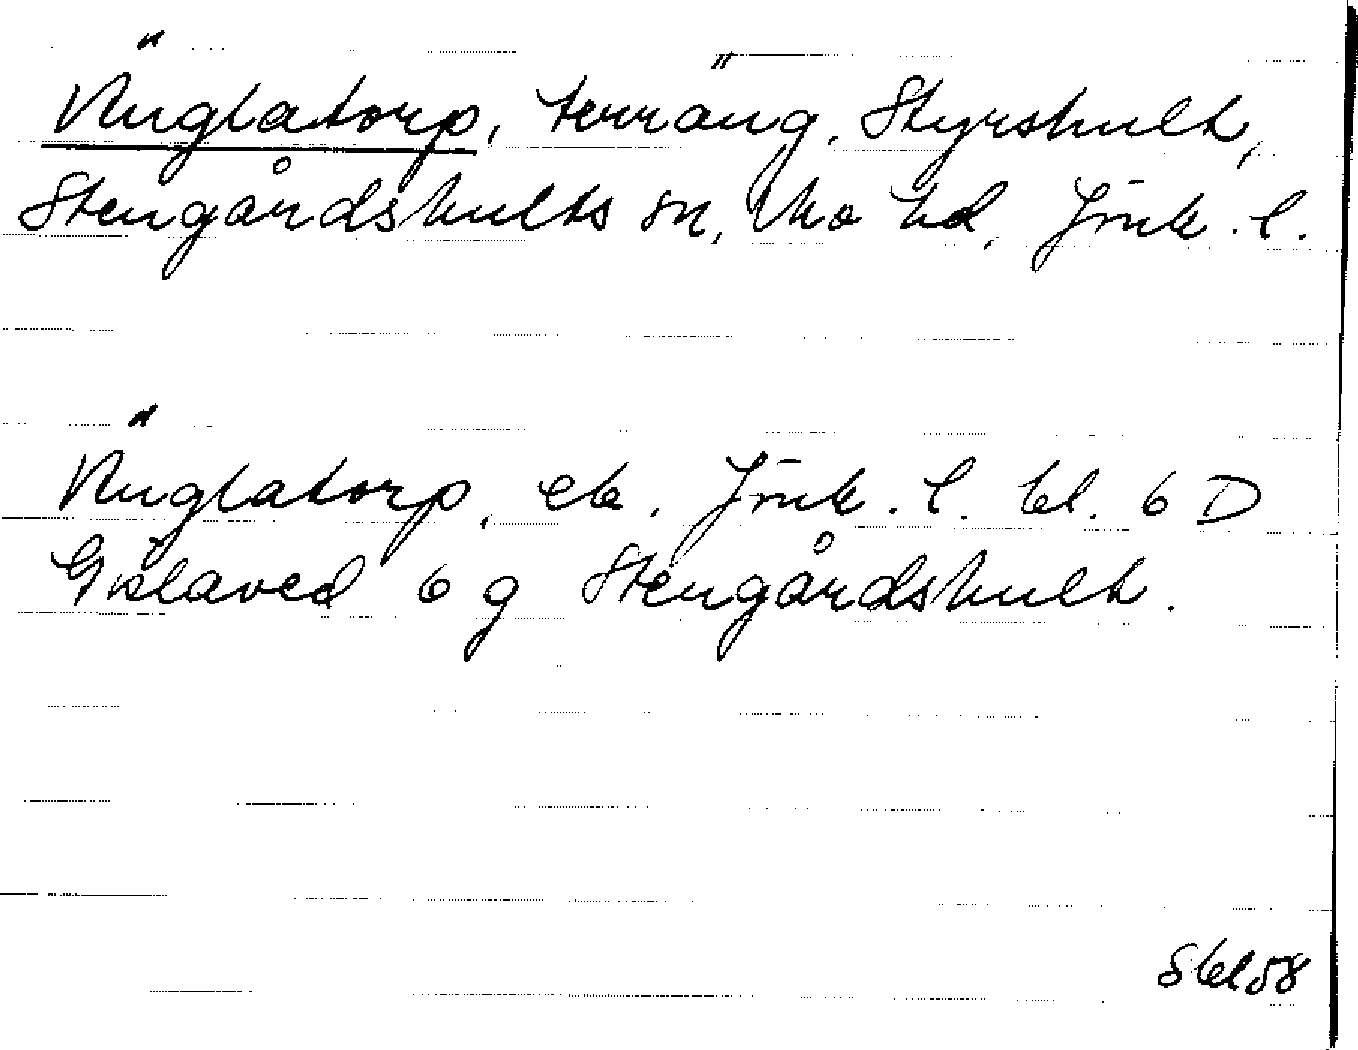 Änglatorp, terräng, Styrshult,
Stengårdshults sn, Mo hd, Jönk. l.
Änglatorp, ek. Jönk. l. bl. 6 D
Gislaved 6 g Stengårdshult.